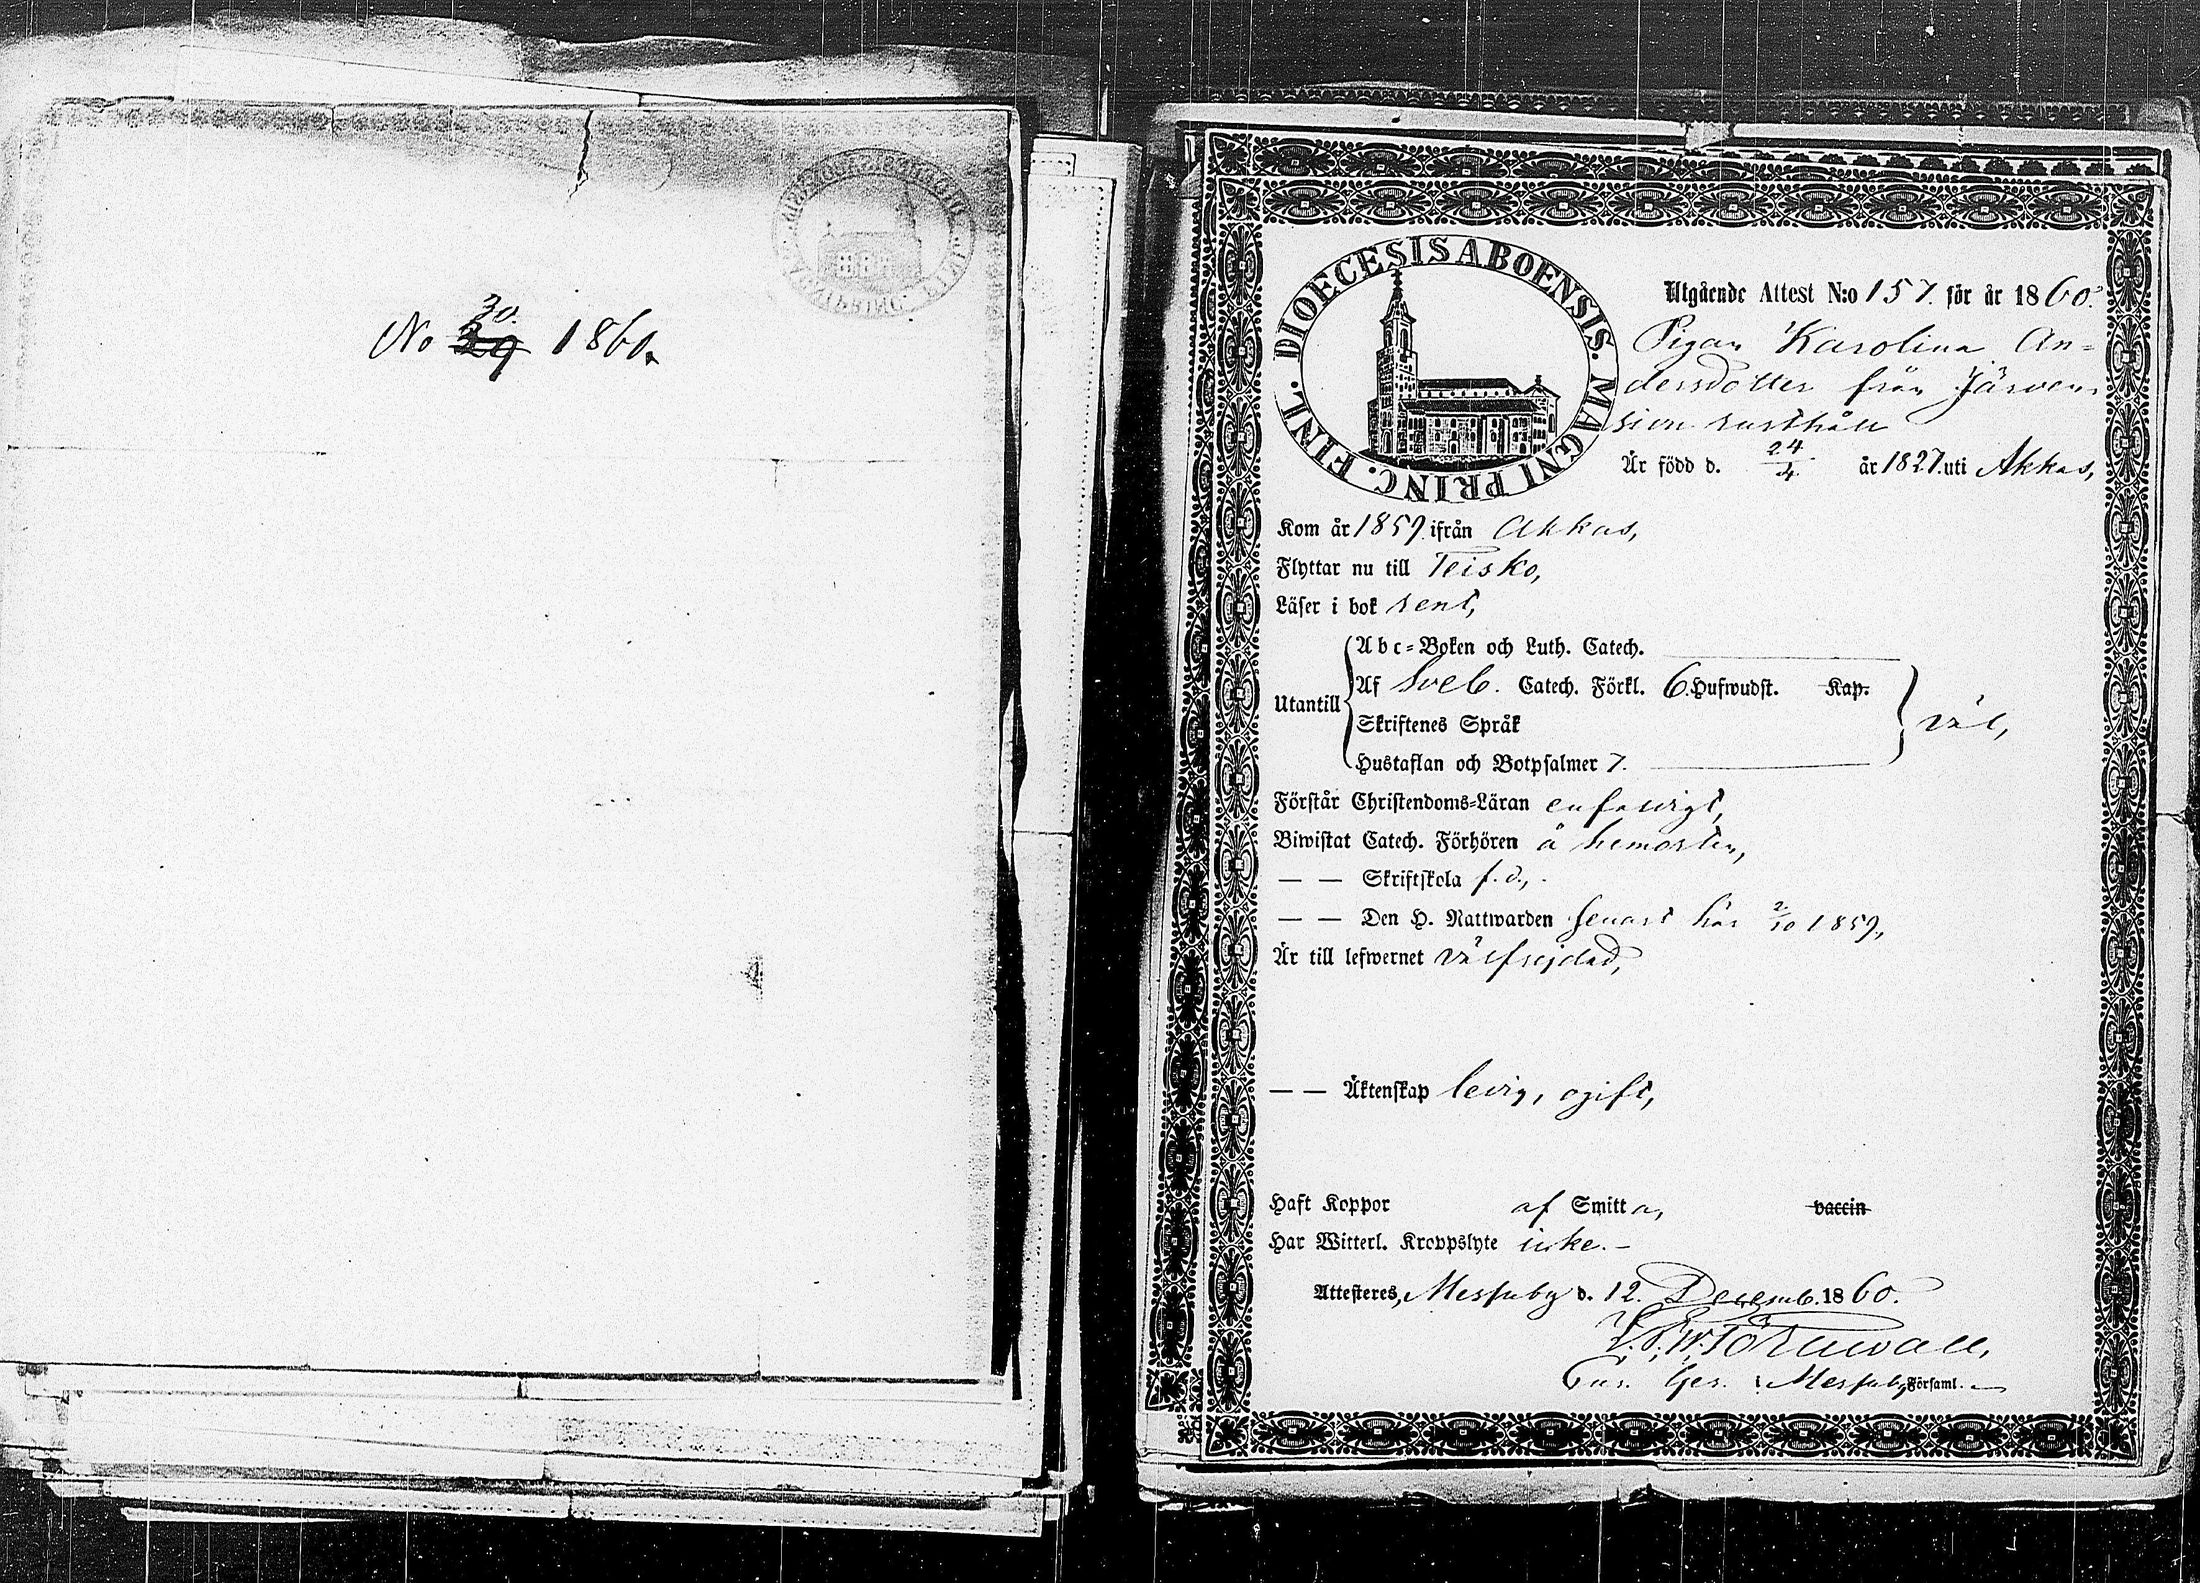 30.
No 29 1860.
DIOECESIS ABOENSIS. MAGNI PRINC. FINL.
Utgående Attest N:o 157. för år 1860.
Pigan Karolina An-
dersdotter från Järven-
sivu rusthåll
Är född d. 24/4 år 1827. uti Akkas,
Kom år 1859. ifrån Akkas,
Flyttar nu till Teisko,
Läser i bok rent,
Abc-Boken och Luth. Catech.
Utantill Af Sveb. Catech. Förkl. 6. Hufwudst. Kap.
Skriftenes Språk
väl,
Hustaflan och Botpsalmer 7.
Förstår Christendoms-Läran enfaldigt,
Biwistat Catech. Förhören å hemorten,
— — Skriftskola f.d.,
— — Den H. Nattwarden senast här 2/10 1859,
Är till lefwernet välfrejdad,
— — Äktenskap ledig, ogift,
Haft Koppor af Smitta, vaccin
Har Witterl. Kroppslyte icke.-
Attesteres, Messuby d. 12. Decemb. 1860.
Törnwall,
Messuby Församl.